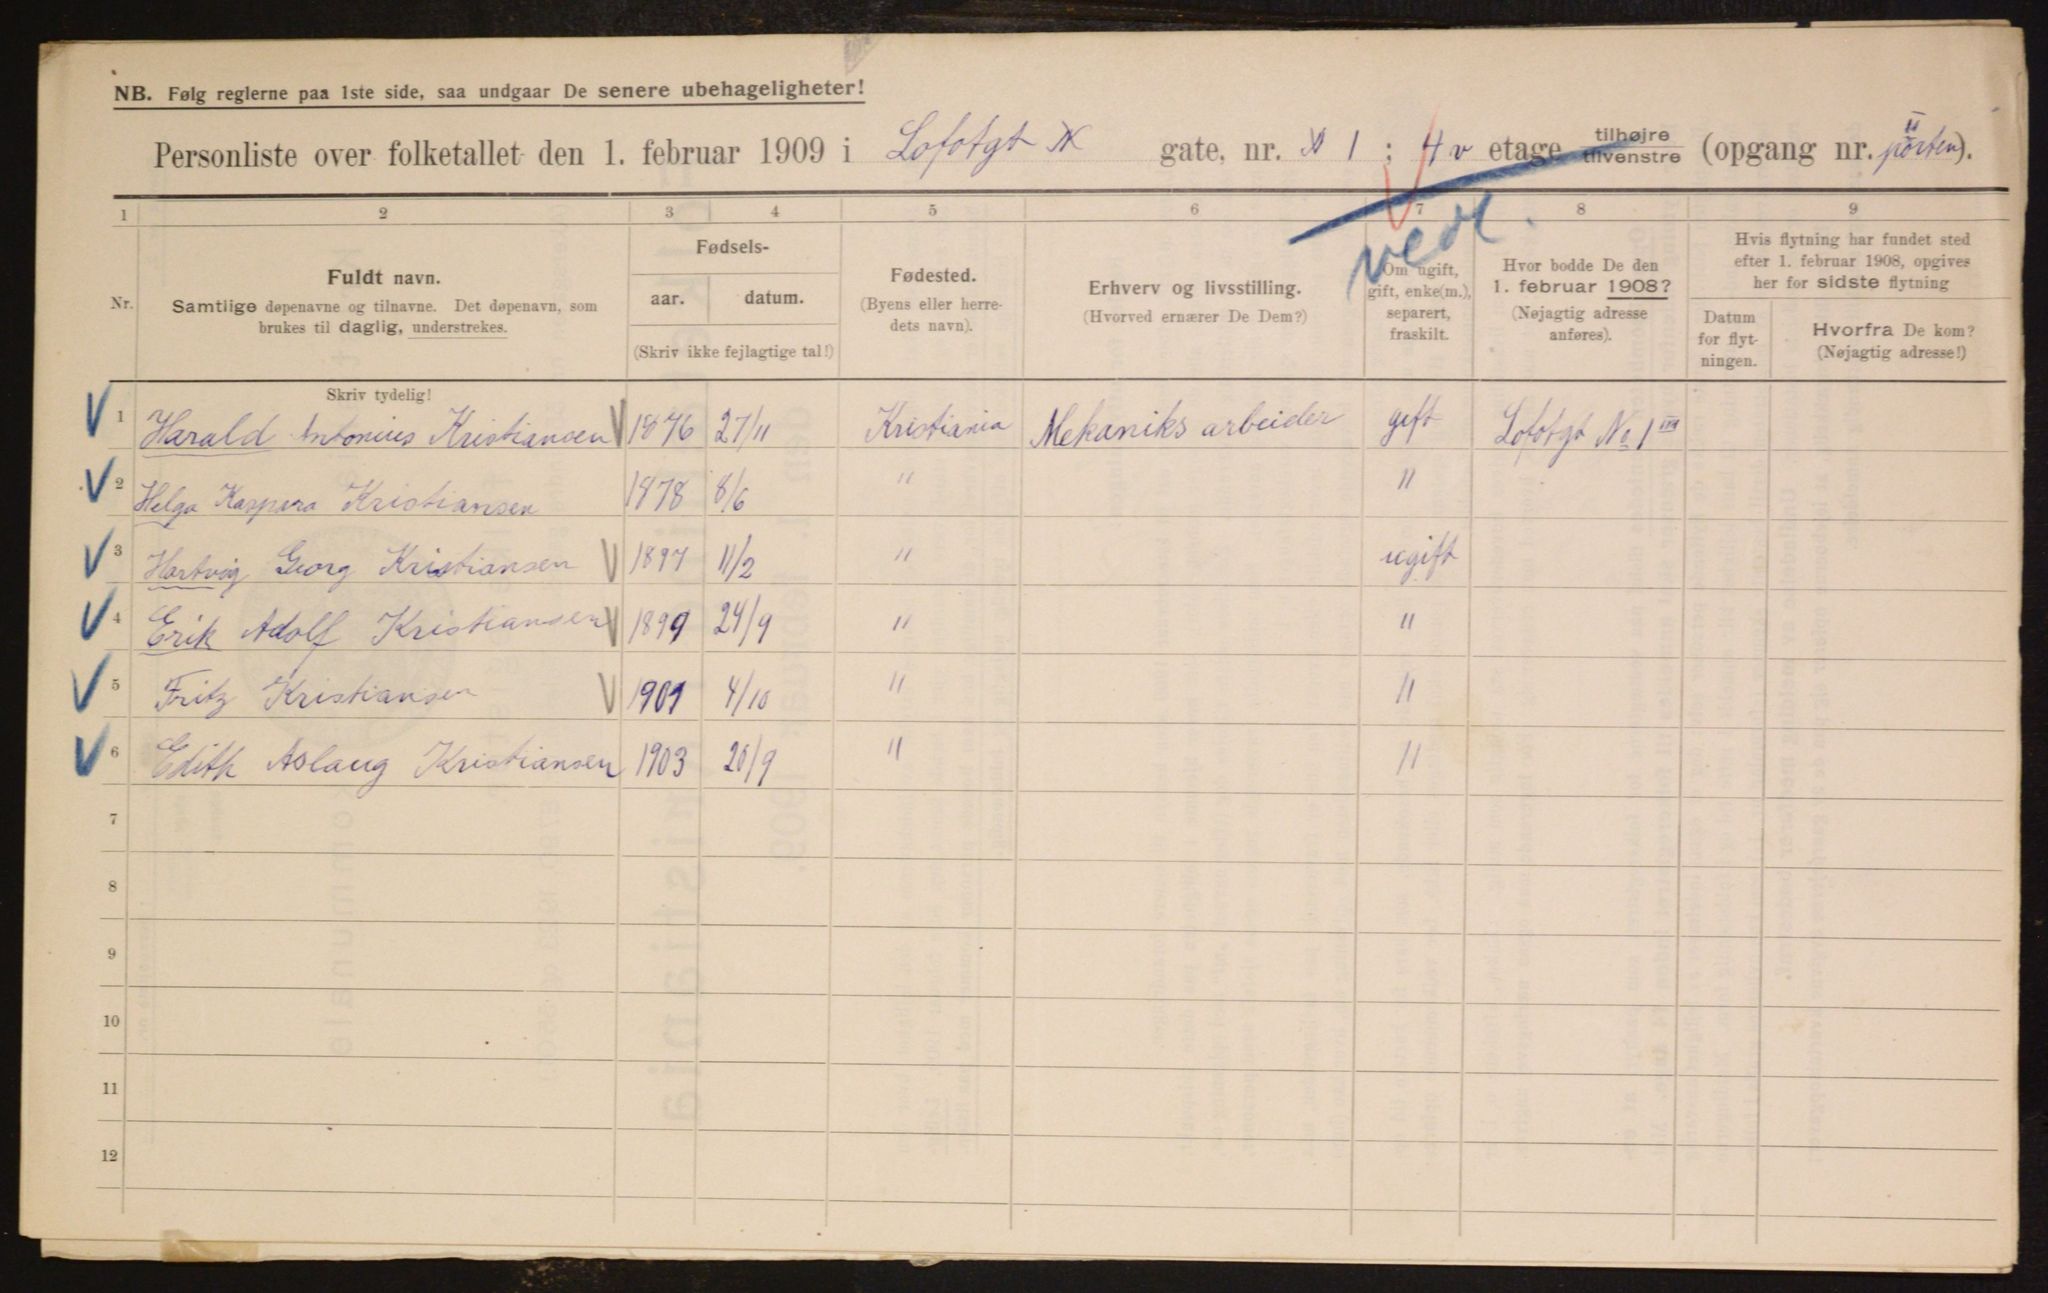 NB. Følg reglerne paa 1ste side, saa undgaar De senere ubehageligheter!
Personliste over folketallet den 1. februar 1909 i Lofotgt gate, nr. 1 ; 4 v etage tilhøjre tilvenstre (opgang nr. II porten).
vedl.
1 2 3 4 5 6 7 8 9
Nr.
Fuldt navn.
Samtlige døpenavne og tilnavne. Det døpenavn, som
brukes til daglig, understrekes.
Fødsels-
aar. datum.
(Skriv ikke fejlagtige tal!)
Fødested.
(Byens eller herre-
dets navn).
Erhverv og livsstilling.
(Hvorved ernærer De Dem?)
Om ugift,
gift, enke(m.),
separert,
fraskilt.
Hvor bodde De den
1. februar 1908?
(Nøjagtig adresse
anføres).
Hvis flytning har fundet sted
efter 1. februar 1908, opgives
her for sidste flytning
Datum
for flyt-
ningen.
Hvorfra De kom?
(Nøjagtig adresse!)
Skriv tydelig!
1 Harald Antonius Kristiansen 1876 27/11 Kristiania Mekaniks arbeider gift Lofotgt No 1
2 Helga Kaspara Kristiansen 1878 8/6 " "
3 Hartvig Georg Kristiansen 1897 11/2 " ugift
4 Erik Adolf Kristiansen 1899 24/9 " "
5 Fritz Kristiansen 1901 4/10 " "
6 Edith Aslaug Kristiansen 1903 20/9 " "
7
8
9
10
11
12